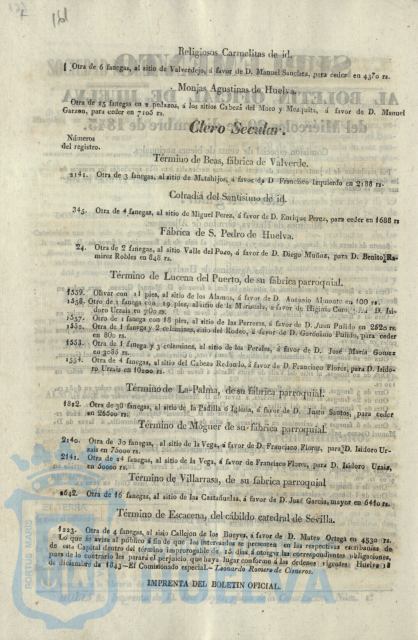 191
Religiosos Carmelitas de id.
Otra de 6 fanegas, al sitio de Valverdejo, á favor de D. Manuel Sanchez, para ceder en 4570 rs.
Monjas Agustinas de Huelva.
Otra de 25 fanegas en 2 pedazos, á los sitios Cabeza del Moro y Mezquita, á favor de D. Manuel
Garzon, para ceder en 7105 rs.
Clero Secular.
Números
del registro.
Término de Beas, fábrica de Valverde.
2141. Otra de 3 fanegas, al sitio de Matahijos, á favor de D Francisco Izquierdo en 2188 rs.
Cofradia del Santísimo de id.
345. Otra de 4 fanegas, al sitio de Miguel Perez, á favor de D. Enrique Perez, para ceder en 1688 rs
Fábrica de S. Pedro de Huelva.
24. Otra de 2 fanegas, al sitio Valle del Pozo, á favor de D. Diego Muñoz, para D. Benito Ra-
mirez Robles en 848 rs.
Término de Lucena del Puerto, de su fábrica parroquial.
1559. Olivar con 11 pies, al sitio de los Alamos, á favor de D. Antonio Almonte en 100 rs.
1558. Otro de 1 fanega con 19 pies, al sitio de la á favor de D. Higinio Caro, D. Isi-
doro Urzais en 960 rs.
1557. Otro de 1 fanega con 18 pies, al sitio de las Parreras, á favor de D. Juan Pulido en 2620 rs
Otra de 1 fanega y 2 colemines, sitio del Rodeo, á favor de D. Pulido, para ceder
en 80
1553. Otra de 1 fanega y 3 colemines, al sitio de los Perales, á favor de D. José María Gomez
en 3085 rs.
1554. Otra de 4 fanegas, al sitio del Cabezo Redondo, á favor de D. Francisco Flores, para D. Isido-
ro Urzais en 10200 rs.
Término de La-Palma, de su fábrica parroquial.
1812. Otra de 38 fanegas, al sitio de la Padilla ó Iglesia, á favor de D. Justo Santos, para ceder
en 26500 rs.
Término de Móguer de su fábrica parroquial.
2140. Otra de 30 fanegas, al sitio de la Vega, á favor de D. Francisco Flores, para D. Isidoro Ur-
zais en 75000 rs.
2141. Otra de 24 fanegas, al sitio de la Vega, á favor de Francisco Flores, para D. Isidoro Urzais,
en 50000 rs.
Término de Villarrasa, de su fábrica parroquial
1642. Otra de 16 fanegas, al sitio de las Castañuelas, á favor de D. José García, mayor en 6410 rs.
Término de Escacena, del cábildo catedral de Sevilla.
1223. Otra de 4 fanegas, al sitio Callejon de los Bueyes, á favor de D. Mateo Ortega en 4530 rs.
Lo que se avisa al público á fin de que los interesados se presenten en las respectivas escribanías de
de esta Capital dentro del término improrogable de 15 dias á otorgar las correspondientes obligaciones,
pues de lo contrario les parará el perjuicio que haya lugar conforme á las órdenes vigentes. Huelva 18
de diciembre de 1843—El Comisionado especial.—Leonardo Romero de Cisneros.
IMPRENTA DEL BOLETIN OFICIAL.
HUELVA